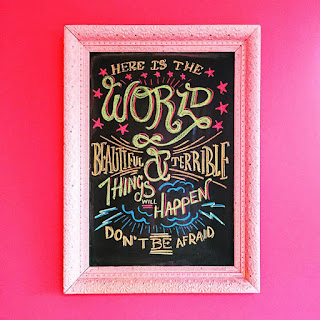 HERE IS THE
WORLD
BEAUTIFUL & TERRIBLE
THINGS
WILL HAPPEN
DON'T BE AFRAID